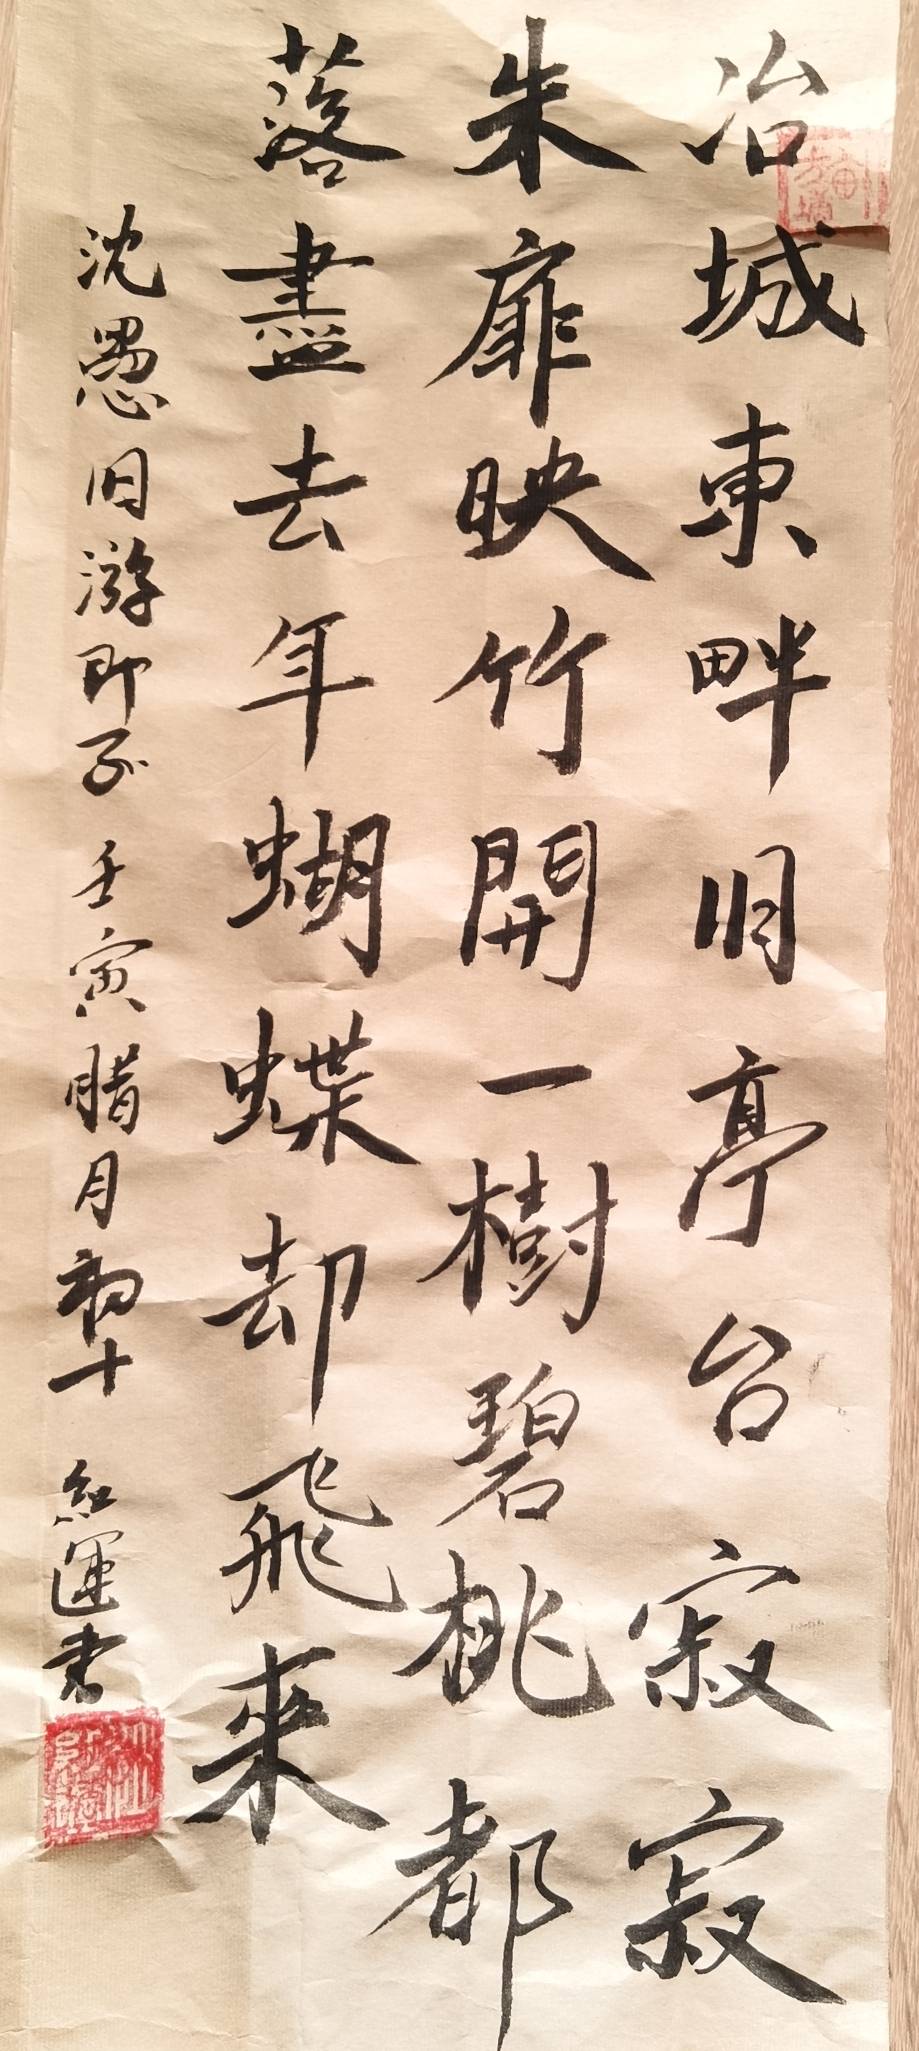 冶城東畔旧亭台寂寂
朱扉映竹開一樹碧桃都
落盡去年蝴蝶却飛來
沈愚旧游即子壬寅腊月初十 紅運書